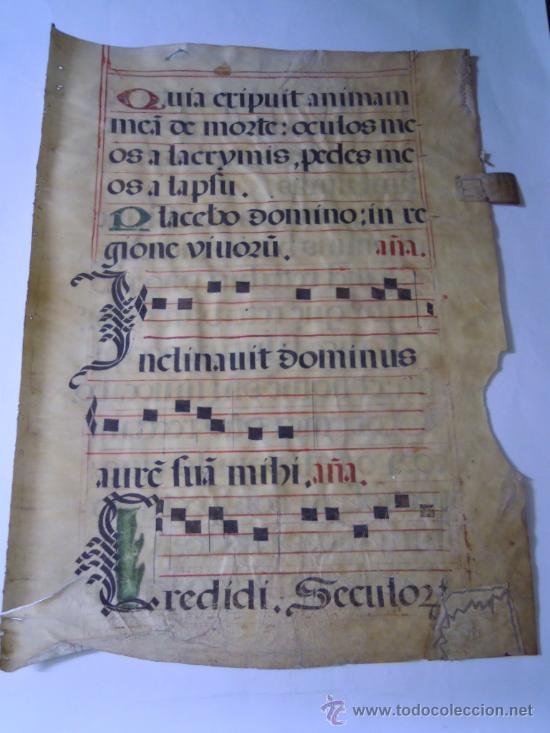 Quia eripuit animam
meā de morte: oculos me-
os a lacrymis, pedes me-
os a lapsu.
Placebo domino: in re-
gione vivorū. aña.
Inclinavit Dominus
aurē suā mihi. aña.
Credidi. Seculor
todocoleccion
www.todocoleccion.net